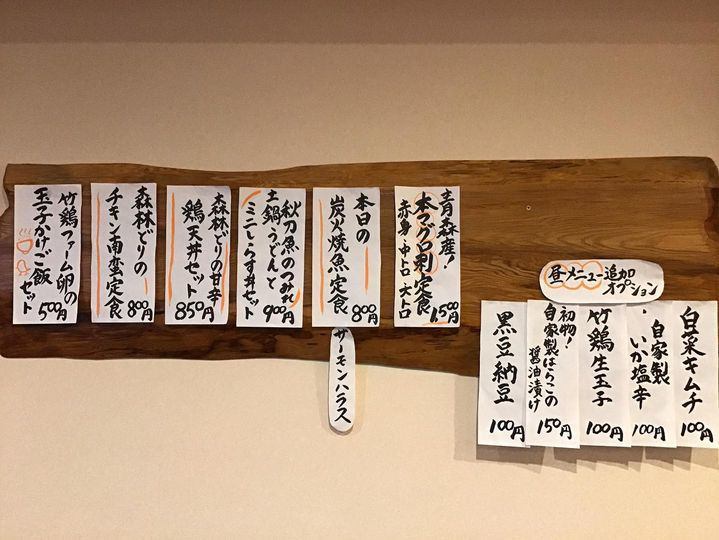 青森産!
本マグロ刺定食
赤身・中トロ・大トロ
1,500円
本日の
炭火焼魚定食
800円
サーモンハラス
秋刀魚のつみれ
土鍋うどんと
ミニしらす丼セット
900円
森林どりの甘辛
鶏天丼セット
850円
森林どりの
チキン南蛮定食
800円
竹鶏ファーム卵の
玉子かけご飯
セット
500円
昼メニュー追加
オプション
白菜キムチ
100円
自家製
いか塩辛
100円
竹鶏生玉子
100円
初物!
自家製はらこの
醤油漬け
150円
黒豆納豆
100円